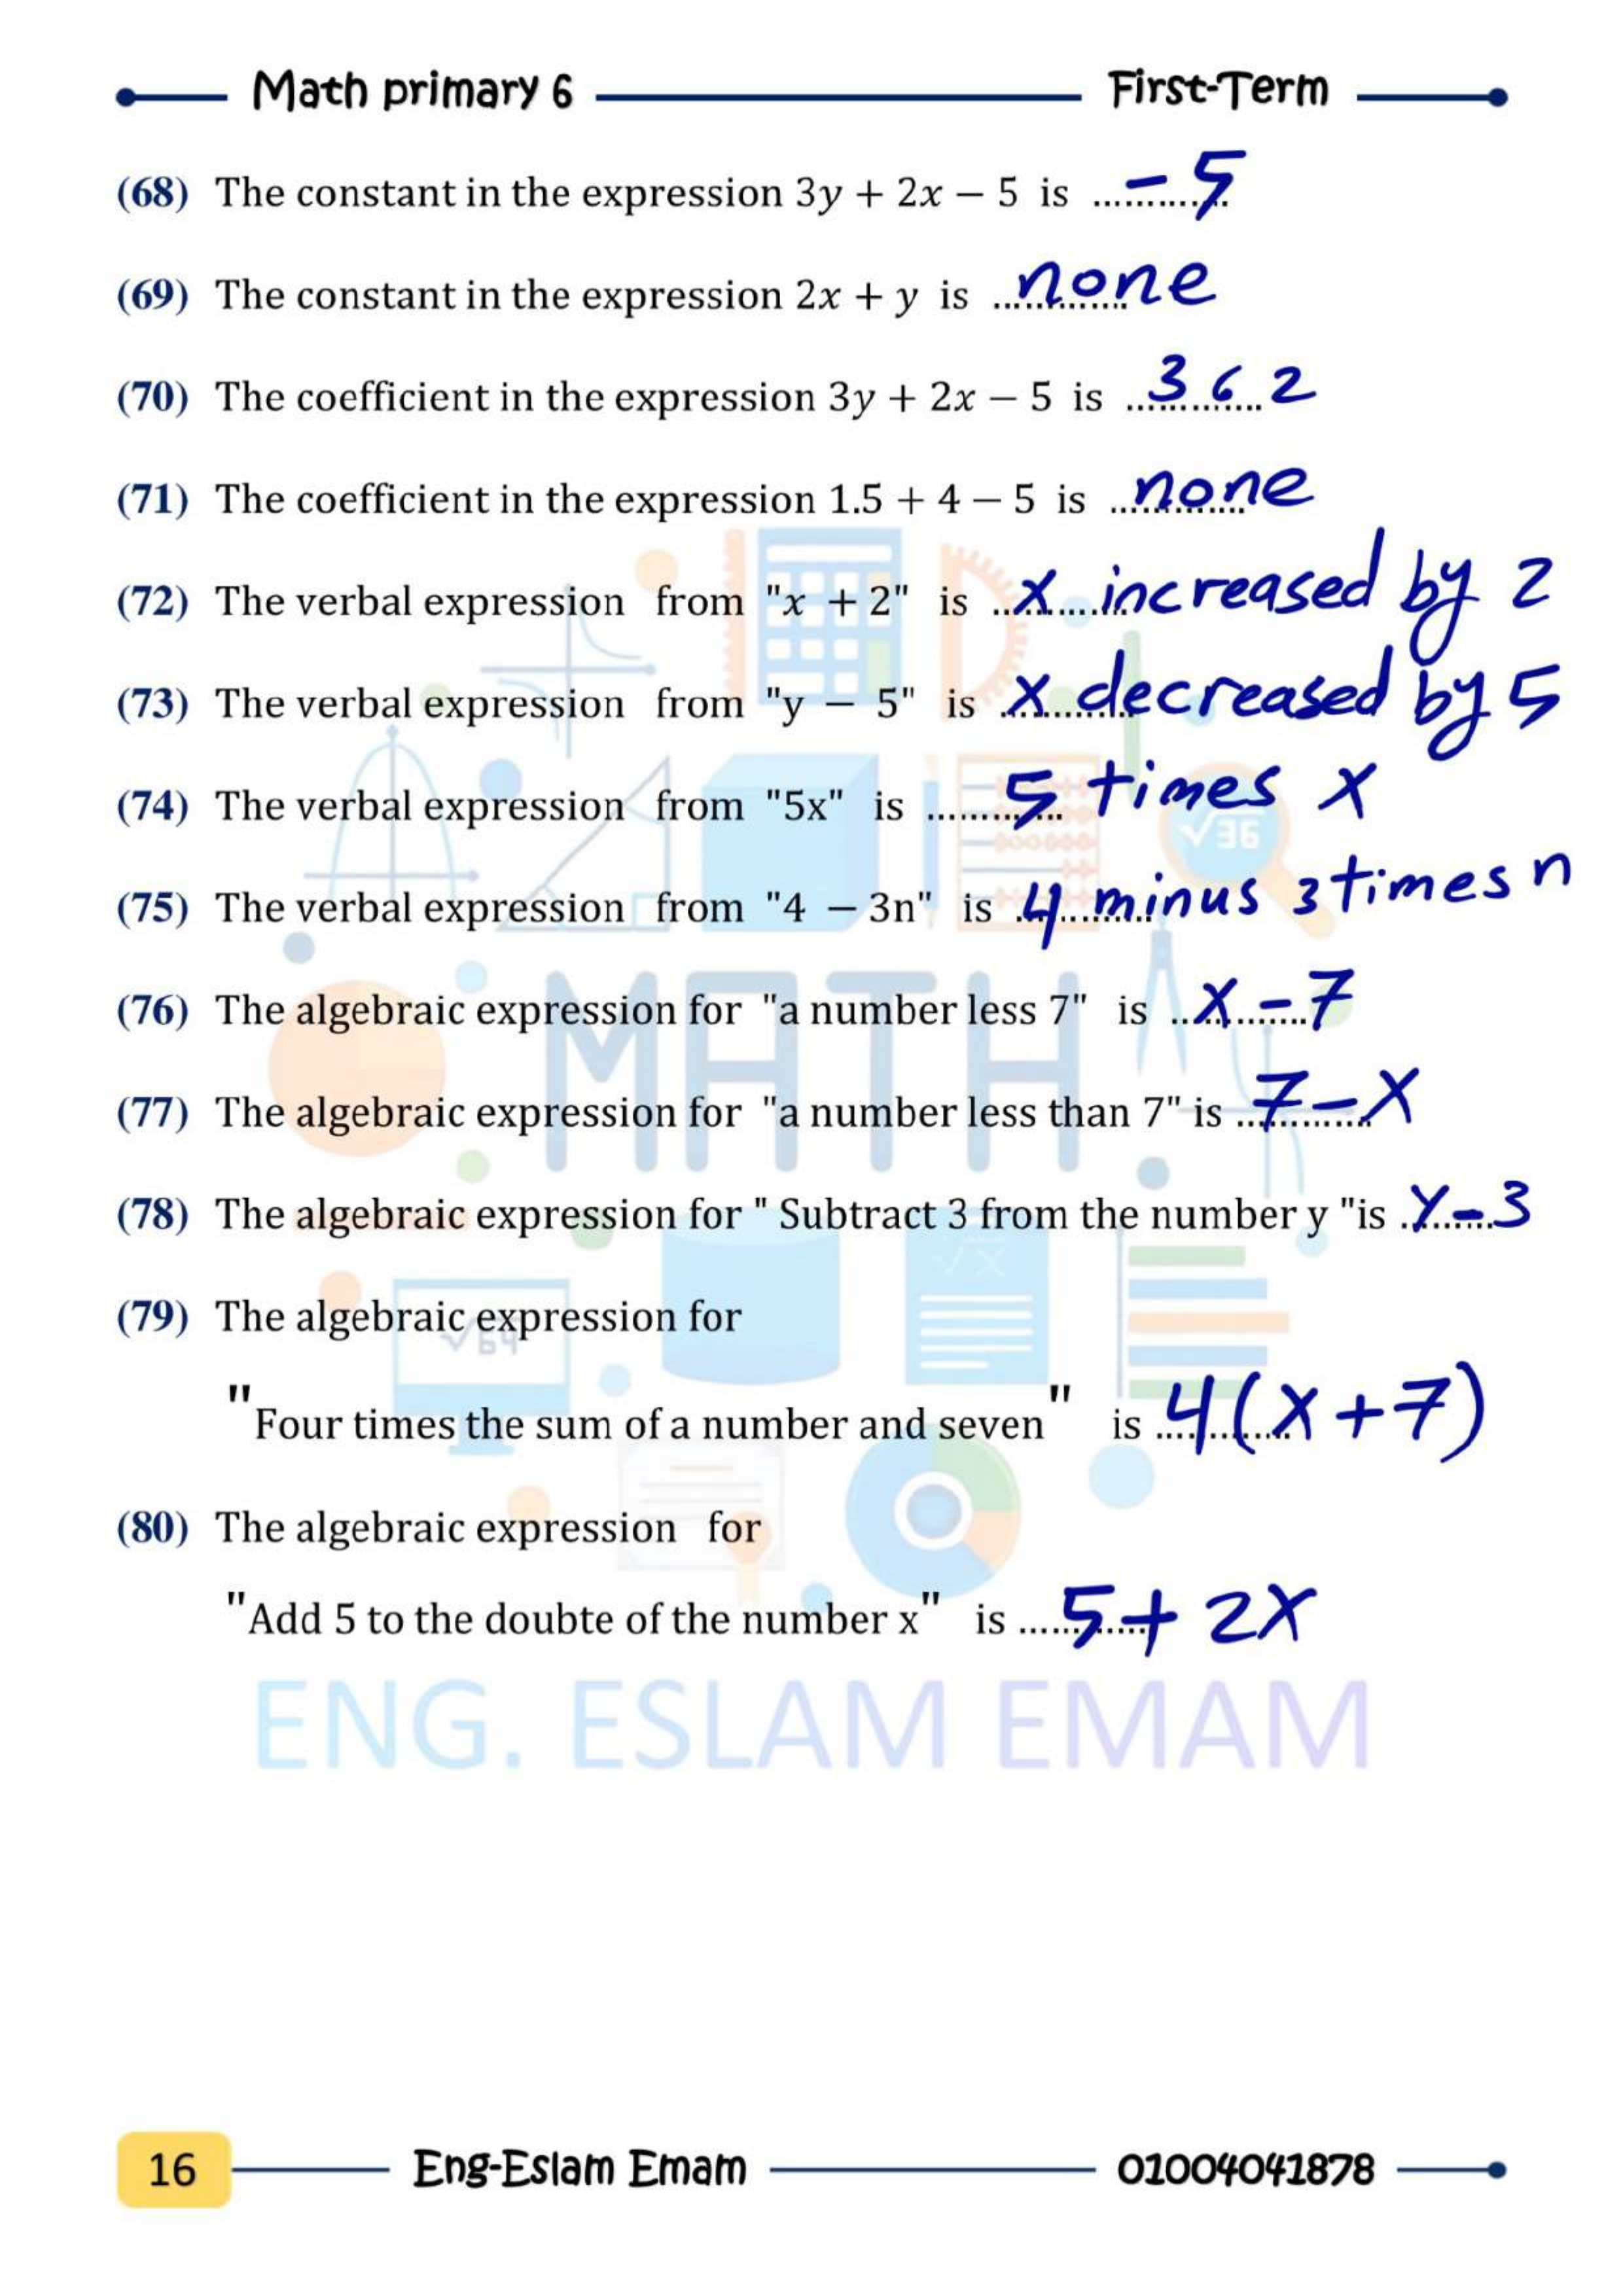 Math primary 6 First-Term
(68) The constant in the expression 3y + 2x − 5 is ............. - 5
(69) The constant in the expression 2x + y is ............. none
(70) The coefficient in the expression 3y + 2x − 5 is ............. 3 6 2
(71) The coefficient in the expression 1.5 + 4 − 5 is ............. none
(72) The verbal expression from "x + 2" is ............. x increased by 2
(73) The verbal expression from "y − 5" is ............. x decreased by 5
(74) The verbal expression from "5x" is ............. 5 times x
(75) The verbal expression from "4 − 3n" is ............. 4 minus 3 times n
(76) The algebraic expression for "a number less 7" is ............. x - 7
(77) The algebraic expression for "a number less than 7" is ............. 7 - x
(78) The algebraic expression for " Subtract 3 from the number y "is ......... y - 3
(79) The algebraic expression for
"Four times the sum of a number and seven" is ............. 4(x + 7)
(80) The algebraic expression for
"Add 5 to the doubte of the number x" is ............. 5 + 2x
MATH
√36
√x
√64
ENG. ESLAM EMAM
16 Eng-Eslam Emam 01004041878